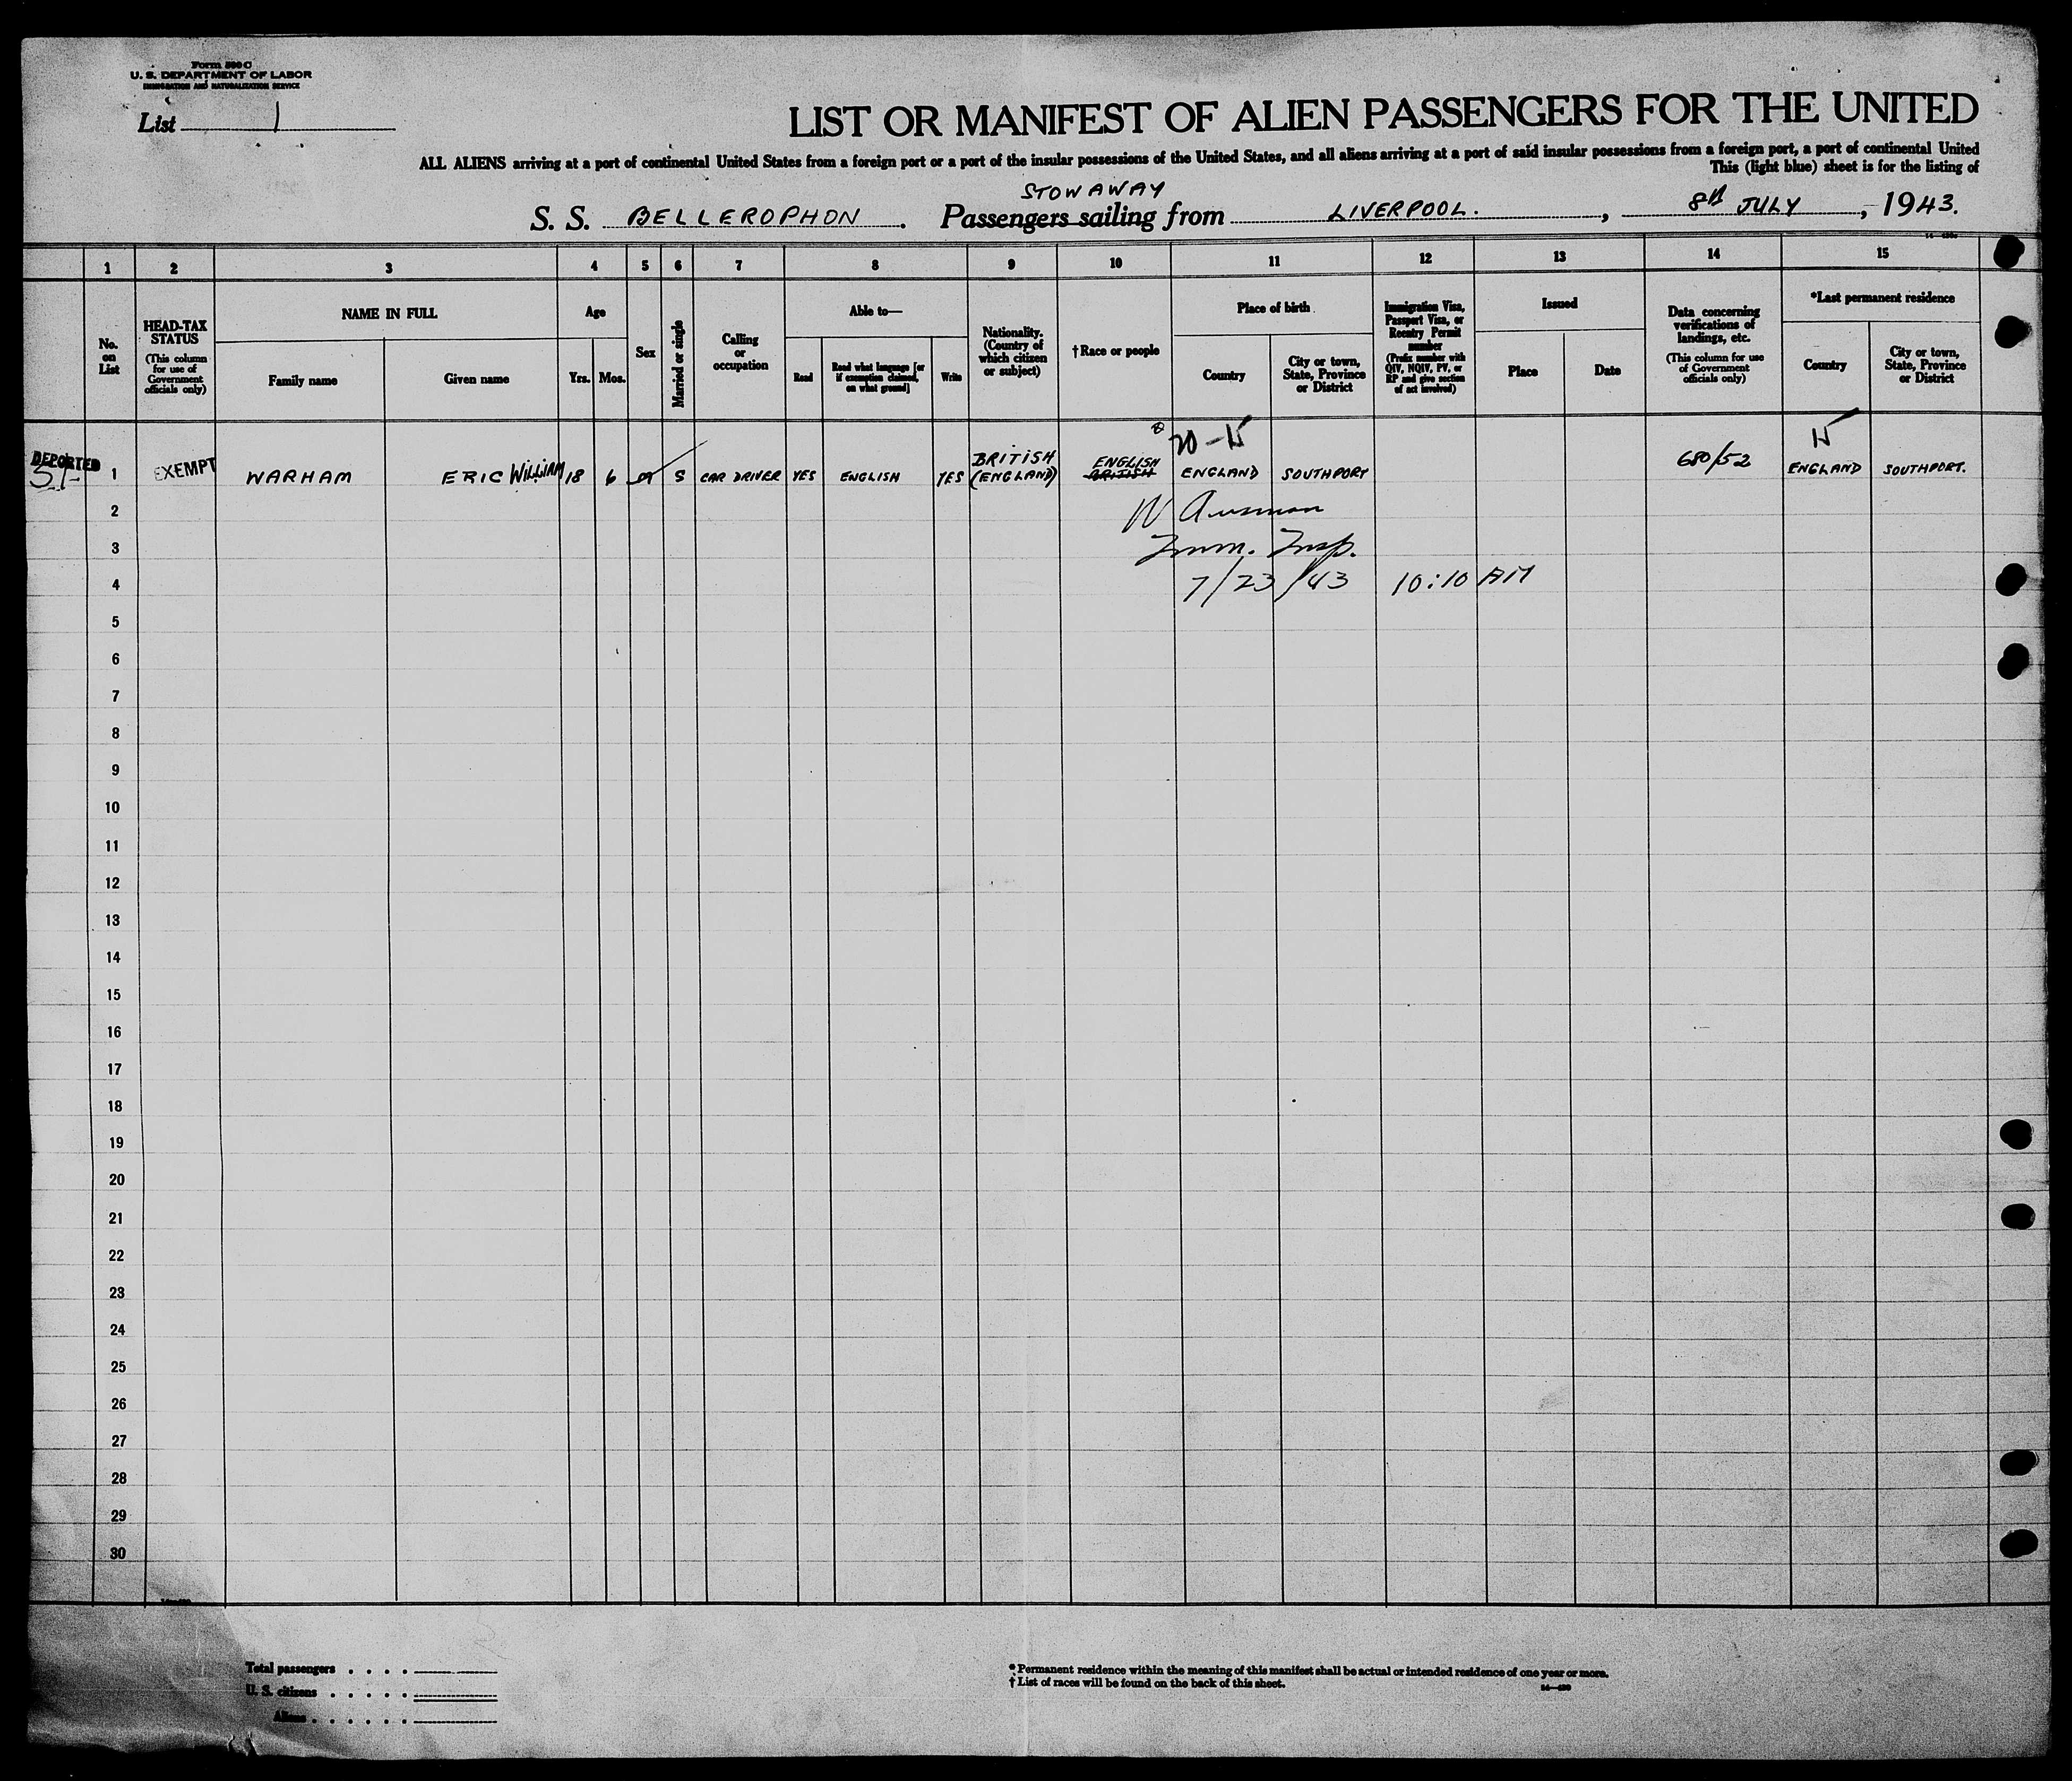 Form 500 C
U. S. DEPARTMENT OF LABOR
IMMIGRATION AND NATURALIZATION SERVICE
List 1
LIST OR MANIFEST OF ALIEN PASSENGERS FOR THE UNITED
ALL ALIENS arriving at a port of continental United States from a foreign port or a port of the insular possessions of the United States, and all aliens arriving at a port of said insular possessions from a foreign port, a port of continental United
This (light blue) sheet is for the listing of
STOWAWAY
S. S. BELLEROPHON. Passengers sailing from LIVERPOOL., 8th JULY, 1943.
1 2 3 4 5 6 7 8 9 10 11 12 13 14 15
No. on List
HEAD-TAX STATUS (This column for use of Government officials only)
NAME IN FULL
Family name
Given name
Age
Yrs.
Mos.
Sex
Married or single
Calling or occupation
Able to—
Read
Read what language [or if exemption claimed, on what ground]
Write
Nationality. (Country of which citizen or subject)
†Race or people
Place of birth
Country
City or town, State, Province or District
Immigration Visa, Passport Visa, or Reentry Permit number (Prefix number with QIV, NQIV, PV, or RP and give section of act involved)
Issued
Place
Date
Data concerning verifications of landings, etc. (This column for use of Government officials only)
*Last permanent residence
Country
City or town, State, Province or District
20-15
15
DEPORTED
1 EXEMPT WARHAM ERIC WILLIAM 18 6 M S CAR DRIVER YES ENGLISH YES BRITISH (ENGLAND) ENGLISH BRITISH ENGLAND SOUTHPORT 680/52 ENGLAND SOUTHPORT.
2
3 Imm. Insp.
4 7/23/43 10:10 AM
5
6
7
8
9
10
11
12
13
14
15
16
17
18
19
20
21
22
23
24
25
26
27
28
29
30
Total passengers . . . .
U. S. citizens . . . . .
Aliens . . . . . .
* Permanent residence within the meaning of this manifest shall be actual or intended residence of one year or more.
† List of races will be found on the back of this sheet.